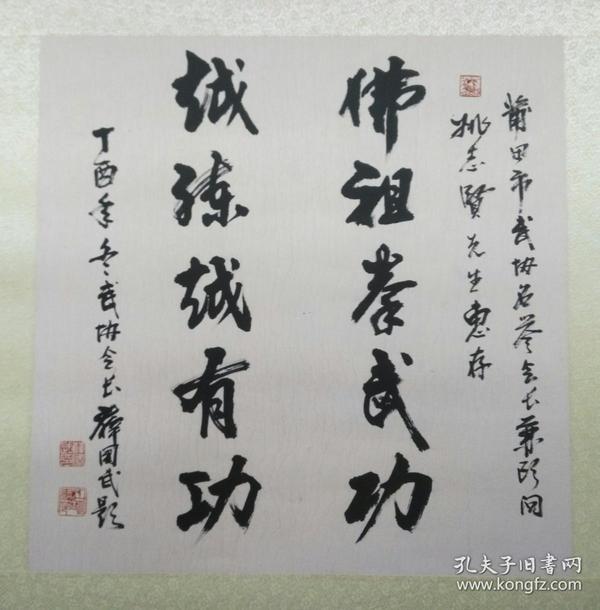 莆田市武协名誉会长兼顾问
姚志贤先生惠存
佛祖拳武功
越练越有功
丁酉年冬武协会长薛国武题
孔夫子旧书网
www.kongfz.com